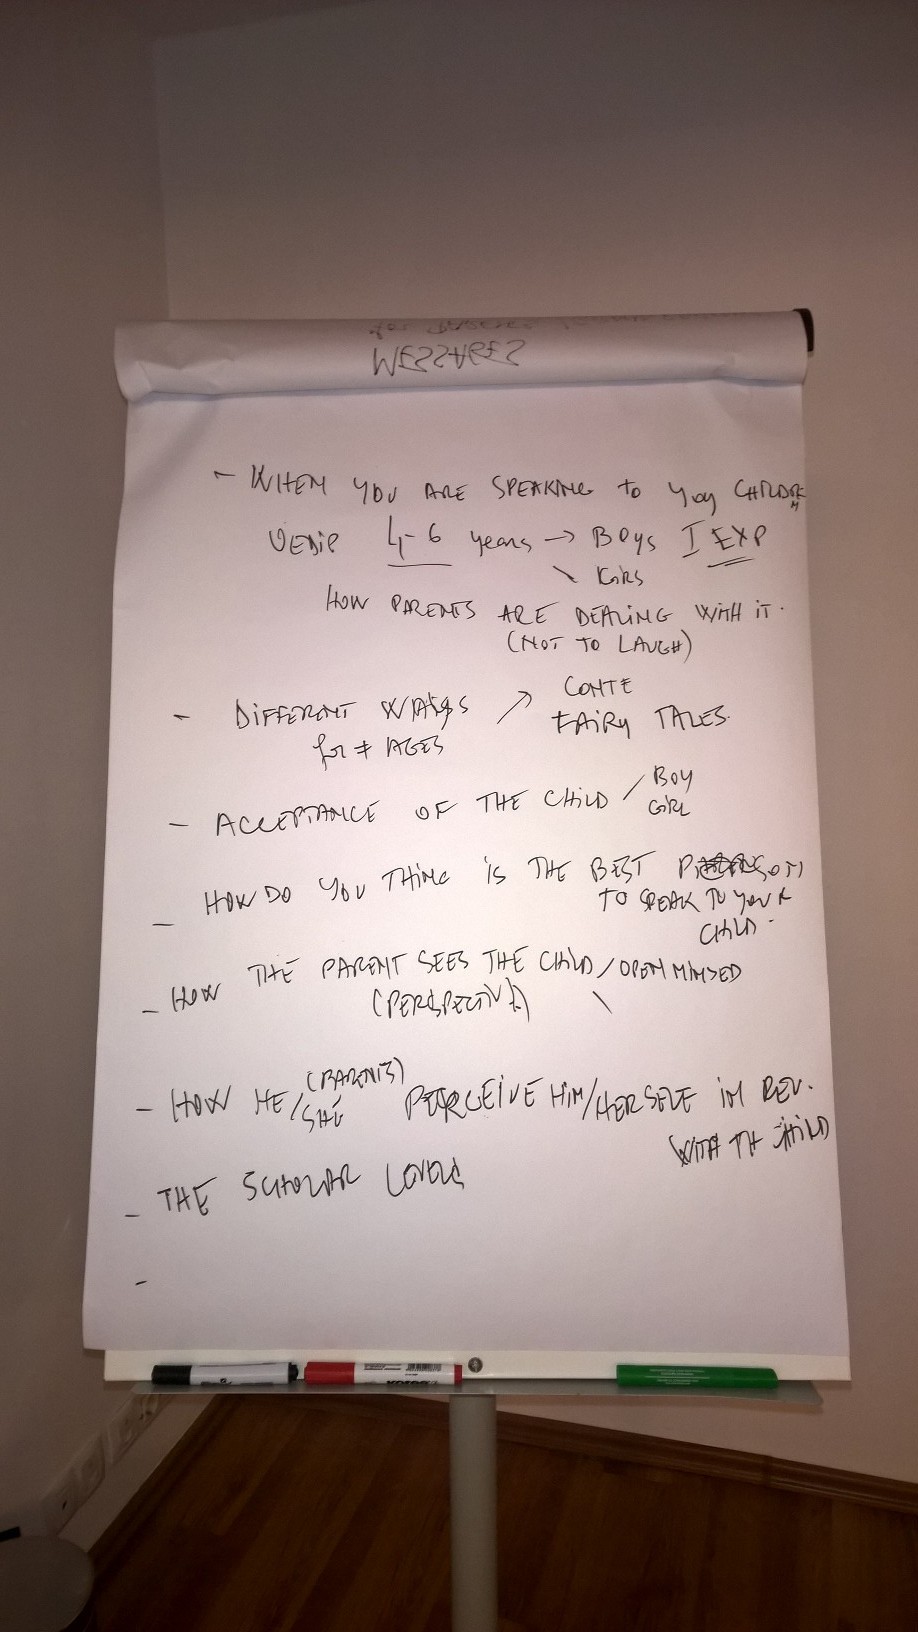 MESSAGES
- WHEN YOU ARE SPEAKING to you CHILDREN
4-6 years → BOys I EXP
GiRS
HOW PARENTS ARE DEALING WITH iT.
(NOT TO LAUGH)
- DiFFERENT WAYS ↗ CONTE
FAiRy TALES.
for ≠ AGES
- ACCEPTANCE OF THE CHiLD / BOY
GiRL
- HOW DO YOU THiNG iS THE BEST PERSON
TO SPEAK TO YOUR
CHiLD.
- HOW THE PARENT SEES THE CHiLD / OPEN MiNDED
(PERSPECTIVE)
- HOW HE/SHE (PARENTS) PERCEIVE HiM/HERSELF iN REV.
WITH TH CHiLD
- THE SCHOLAR LEVELS
-